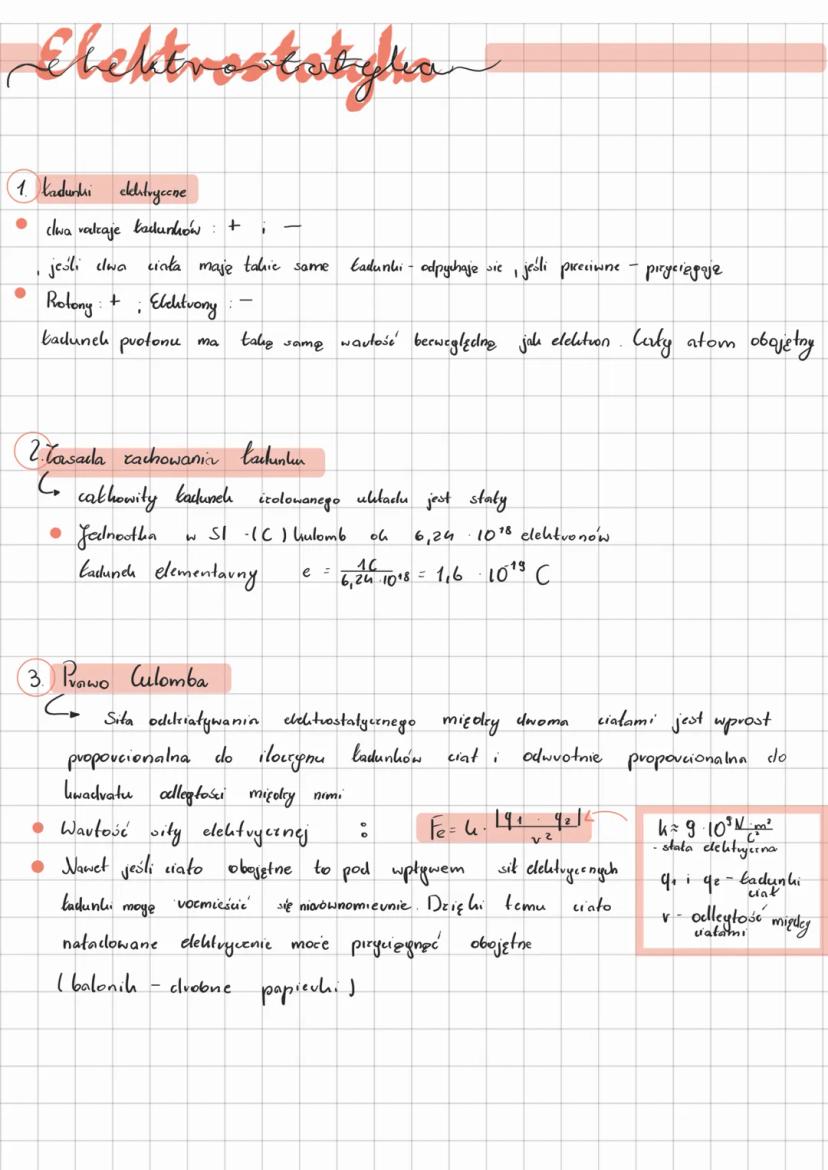 Elektrostatyka
1. Ładunki elektryczne
dwa rodzaje ładunków : + i −
, jeśli dwa ciała mają takie same ładunki - odpychają się , jeśli przeciwne - przyciągają
Protony : + ; Elektrony : −
Ładunek protonu ma taką samą wartość bezwzględną jak elektron . Cały atom obojętny
2. Zasada zachowania ładunku
↳ całkowity ładunek izolowanego układu jest stały
Jednostka w SI - (C) kulomb ok 6,24 · 10¹⁸ elektronów
Ładunek elementarny e = 1C / 6,24 · 10¹⁸ = 1,6 · 10⁻¹⁹ C
3. Prawo Culomba
↳ Siła oddziaływania elektrostatycznego między dwoma ciałami jest wprost
proporcjonalna do iloczynu ładunków ciał i odwrotnie proporcjonalna do
kwadratu odległości między nimi
Wartość siły elektrycznej : Fe = k · |q₁ · q₂| / r²
Nawet jeśli ciało obojętne to pod wpływem sił elektrycznych
ładunki mogą rozmieścić się nierównomiernie. Dzięki temu ciało
naładowane elektrycznie może przyciągnąć obojętne
(balonik - drobne papierki)
k ≈ 9 · 10⁹ N · m² / C²
- stała elektryczna
q₁ i q₂ - ładunki
ciał
r - odległość między
ciałami